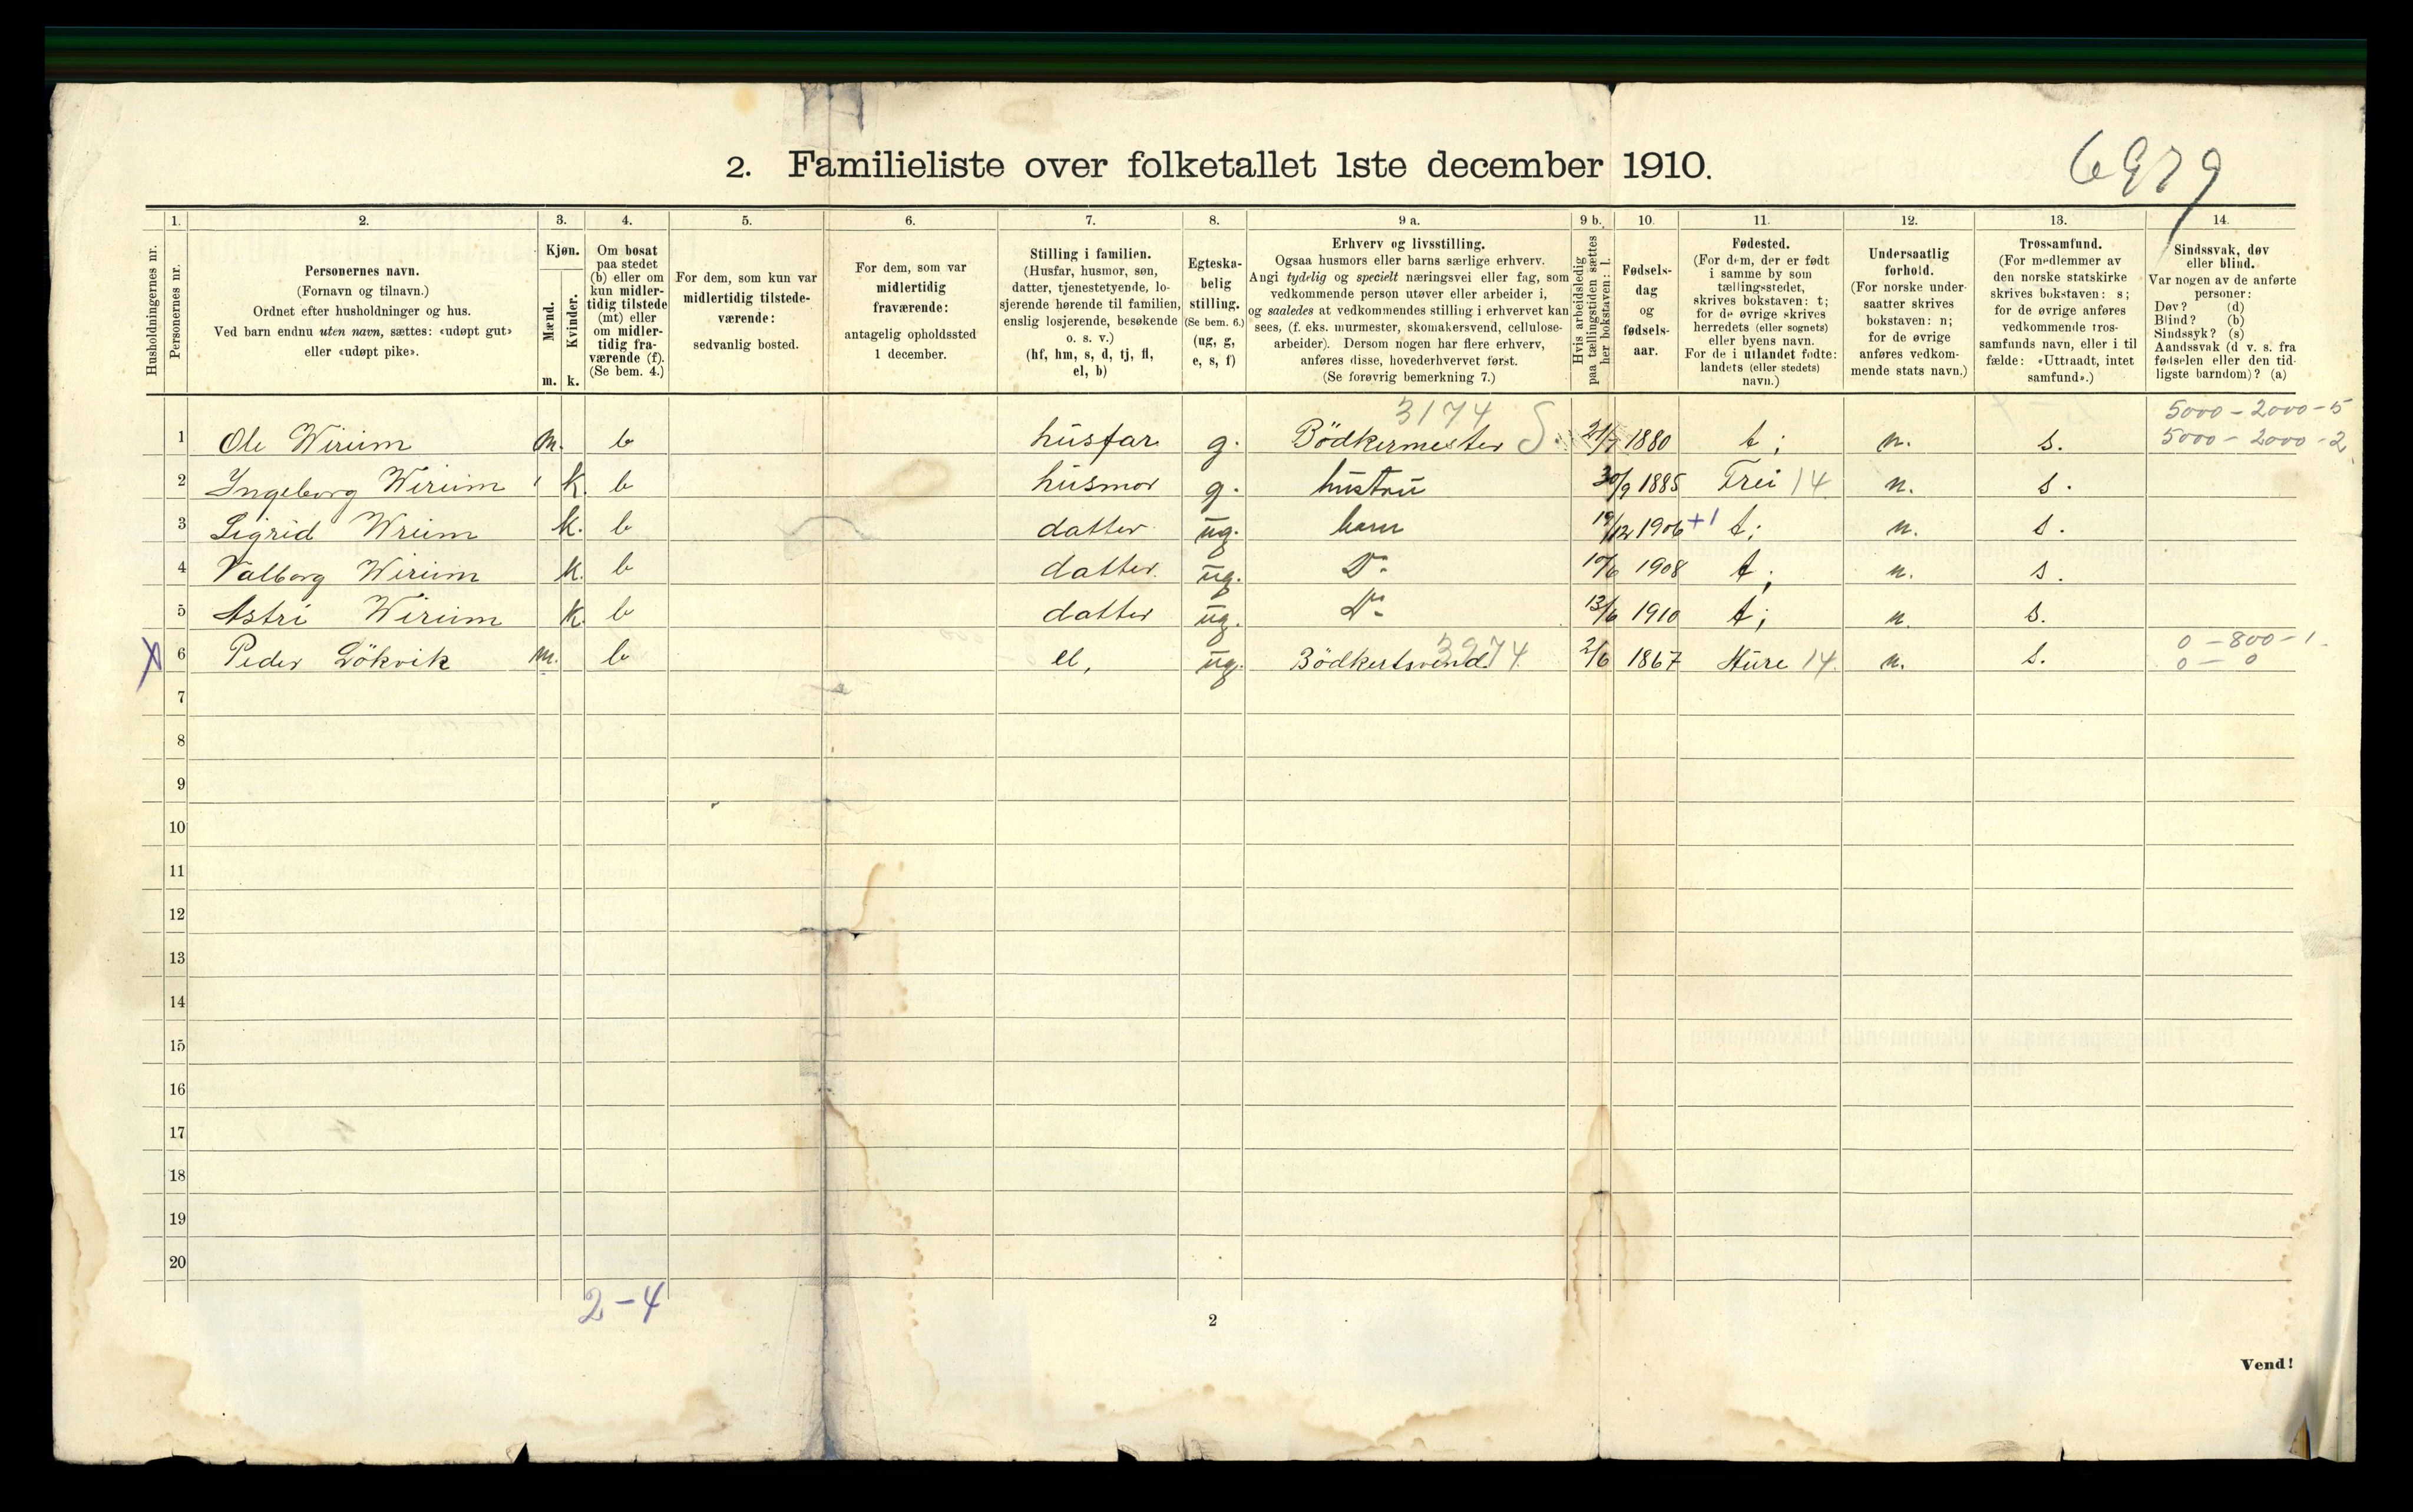 6979
2. Familieliste over folketallet 1ste december 1910.
1. 2. 3. 4. 5. 6. 7. 8. 9 a. 9 b. 10. 11. 12. 13. 14.
Husholdningernes nr.
Personernes nr.
Personernes navn.
(Fornavn og tilnavn.)
Ordnet efter husholdninger og hus.
Ved barn endnu uten navn, sættes: «udøpt gut»
eller «udøpt pike».
Kjøn.
Mænd.
Kvinder.
m. k.
Om bosat
paa stedet
(b) eller om
kun midler-
tidig tilstede
(mt) eller
om midler-
tidig fra-
værende (f).
(Se bem. 4.)
For dem, som kun var
midlertidig tilstede-
værende:
sedvanlig bosted.
For dem, som var
midlertidig
fraværende:
antagelig opholdssted
1 december.
Stilling i familien.
(Husfar, husmor, søn,
datter, tjenestetyende, lo-
sjerende hørende til familien,
enslig losjerende, besøkende
o. s. v.)
(hf, hm, s, d, tj, fl,
el, b)
Egteska-
belig
stilling.
(Se bem. 6.)
(ug, g,
e, s, f)
Erhverv og livsstilling.
Ogsaa husmors eller barns særlige erhverv.
Angi tydelig og specielt næringsvei eller fag, som
vedkommende person utøver eller arbeider i,
og saaledes at vedkommendes stilling i erhvervet kan
sees, (f. eks. murmester, skomakersvend, cellulose-
arbeider). Dersom nogen har flere erhverv,
anføres disse, hovederhvervet først.
(Se forøvrig bemerkning 7.)
Hvis arbeidsledig
paa tællingstiden sættes
her bokstaven: l.
Fødsels-
dag
og
fødsels-
aar.
Fødested.
(For dem, der er født
i samme by som
tællingsstedet,
skrives bokstaven: t;
for de øvrige skrives
herredets (eller sognets)
eller byens navn.
For de i utlandet fødte:
landets (eller stedets)
navn.)
Undersaatlig
forhold.
(For norske under-
saatter skrives
bokstaven: n;
for de øvrige
anføres vedkom-
mende stats navn.)
Trossamfund.
(For medlemmer av
den norske statskirke
skrives bokstaven: s;
for de øvrige anføres
vedkommende tros-
samfunds navn, eller i til
fælde: «Uttraadt, intet
samfund».)
Sindssvak, døv
eller blind.
Var nogen av de anførte
personer:
Døv? (d)
Blind? (b)
Sindssyk? (s)
Aandssvak (d v. s. fra
fødselen eller den tid-
ligste barndom)? (a)
3174 5000 - 2000 - 5
1 Ole Wirum m. b husfar g. Bödkermester S. 21/7 1880 t; n. s. 5000 - 2000 - 2
2 Ingeborg Wirum k. b husmor g. hustru 30/9 1885 Frei 14 n. s.
3 Sigrid Wrium k. b datter ug. barn 19/12 1906 +1 t; n. s.
4 Valborg Wirum k. b datter ug. Do 10/6 1908 t; n. s.
5 Astri Wirum k. b datter ug. Do 13/6 1910 t; n. s.
X 6 Peder Lökvik m. b el, ug. Bödkertsvend 3274 2/6 1867 Hure 14. n. s. 0 - 800 - 1.
0 - 0
7
8
9
10
11
12
13
14
15
16
17
18
19
20
2-4
2
Vend!